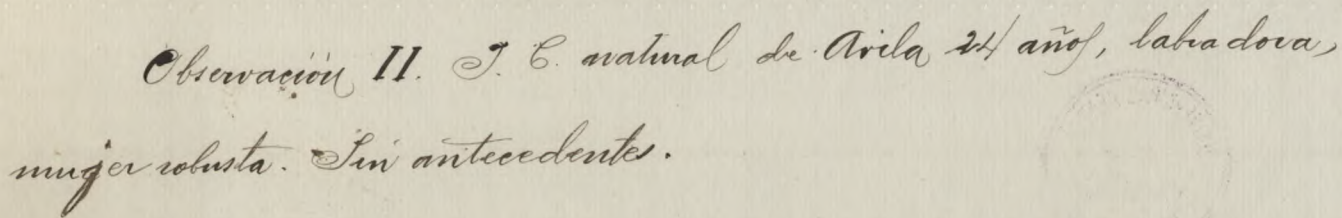 Observación II. J. C. natural de Avila 24 años, labradora,
muger robusta. Sin antecedentes.